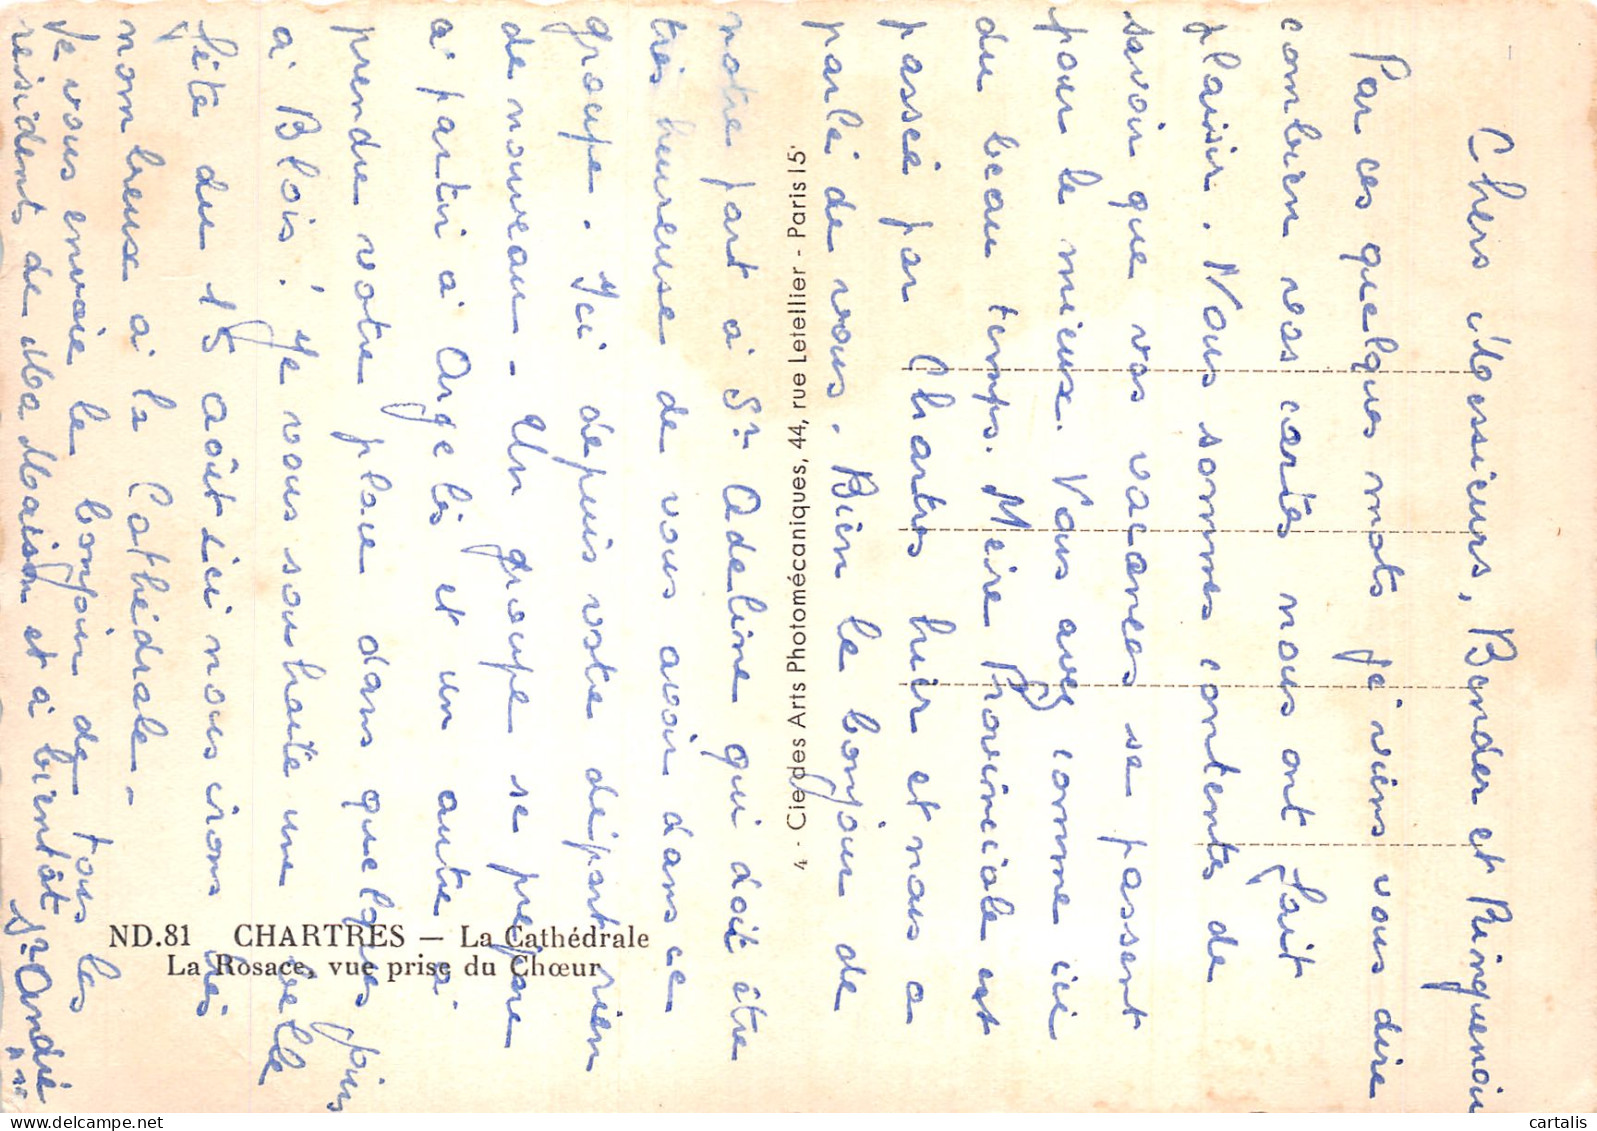 Chers Messieurs, Bender et Pinquenoir
Par ces quelques mots je viens vous dire
combien vos cartes nous ont fait
plaisir. Nous sommes contents de
savoir que vos vacances se passent
pour le mieux. Vous avez comme ici
du beau temps. Meire Provinciale est
passée par Chartres hier et nous a
parlé de vous. Bien le bonjour de
notre part à Sr Adeline qui doit être
très heureuse de vous avoir dans ce
groupe. Ici depuis votre départ rien
de nouveau - Un groupe se prépare
à partir à Argelès et un autre ira
prendre votre place dans quelques jours
à Blois. Je vous souhaite une belle
fête du 15 août ici nous irons très
nombreux à la Cathédrale -
Je vous envoie le bonjour de tous les
résidents de Ma Maison et à bientôt Sr André
4 - Cie des Arts Photomécaniques, 44, rue Letellier - Paris 15'
ND.81 CHARTRES — La Cathédrale
La Rosace, vue prise du Chœur
cartalis